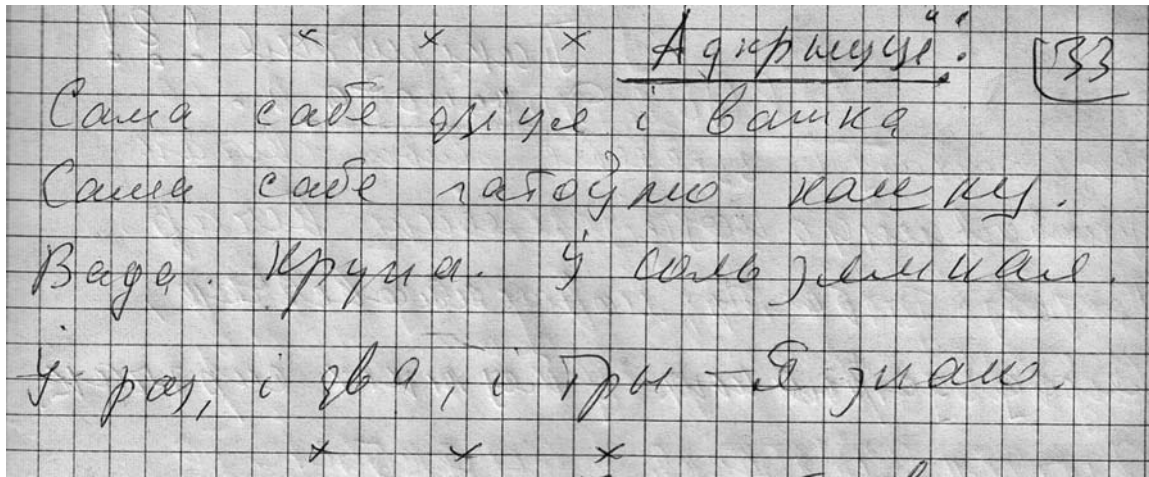 × × × Адкрыццё! 33
Сама сабе дзіця і
Сама сабе гатоўлю кашку.
Вада. Крупа. І соль зямная.
І раз, і два, і тры – Я знаю.
× × ×